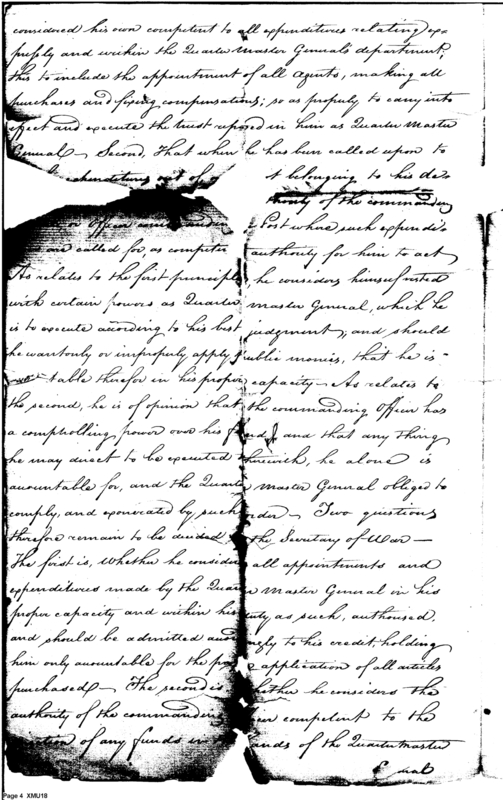 considered his own competent to all expenditures relating ex-
pressly and within the Quarter Master Generals department;
this to include the appointment of all agents, making all
purchases and fixing compensations; so as properly to carry into
effect and execute the trust reposed in him as Quarter Master
General — Second, That when he has been called upon to
expenditures out of t belonging to his de
thority of the commanding
or Officer commandin Post where such expendi
are called for, as competen authority for him to act
As relates to the first principle, he considers himself vested
with certain powers as Quarter master General, which he
is to execute according to his best judgment, and should
he wantonly or improperly apply public monies, that he is
table therefor in his proper capacity — As relates to
the second, he is of opinion that the commanding Officer has
a comptrolling power over his f and that any thing
he may direct to be executed therewith, he alone is
accountable for, and the Quarter Master General obliged to
comply, and exonerated by such order — Two questions
therefore remain to be decided the Secretary of War —
The first is, Whether he consider all appointments and
expenditures made by the Quarter Master General in his
proper capacity and within his duty as such, authorised,
and should be admitted accordingly to his credit, holding
him only accountable for the pro application of all articles
purchased — The second is whether he considers the
authority of the commandin cer competent to the
ction of any funds in ands of the Quartermaster
General
Page 4 XMU18